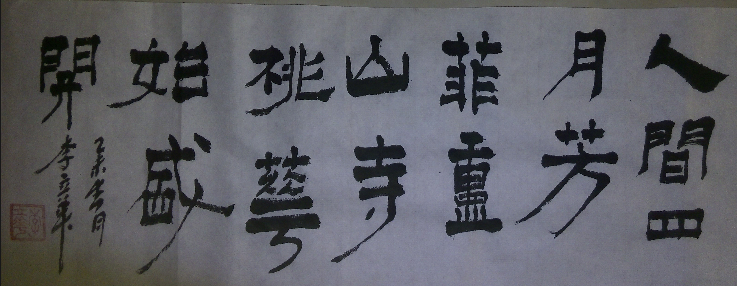 人間四
月芳
菲盡
山寺
桃華
始盛
開
乙未
李立